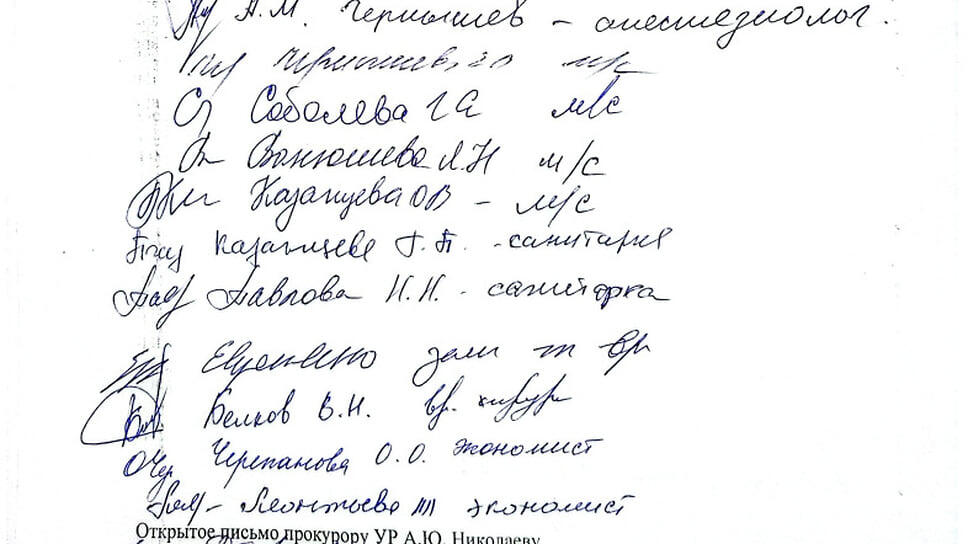 А.М. Чернышев - анестезиолог.
м/с
Соболева Г С м/с
Ванюшева Л.Н м/с
Казанцева О В - м/с
Казанцева Г.П. - санитарка
Павлова Н.Н. - санитарка
зам
Белков В.Н. вр. хирург
Черепанова О.О. экономист
Леонтьева экономист
Открытое письмо прокурору УР А.Ю. Николаеву